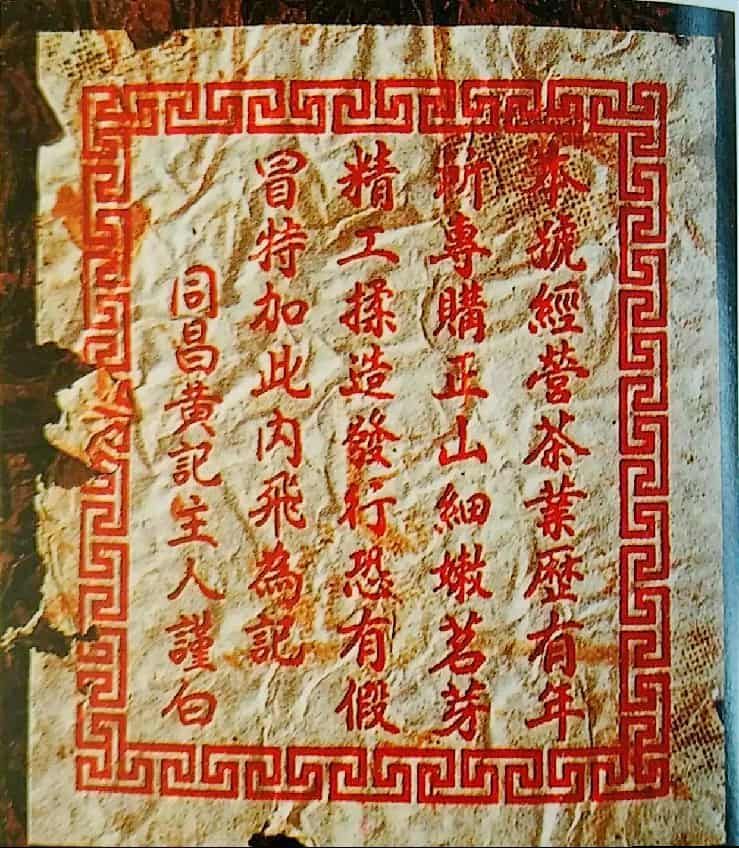 本號經營茶業歷有年
所專購正山細嫩茗芽
精工揉造發行恐有假
冒特加此內飛為記
同昌黃記主人謹白